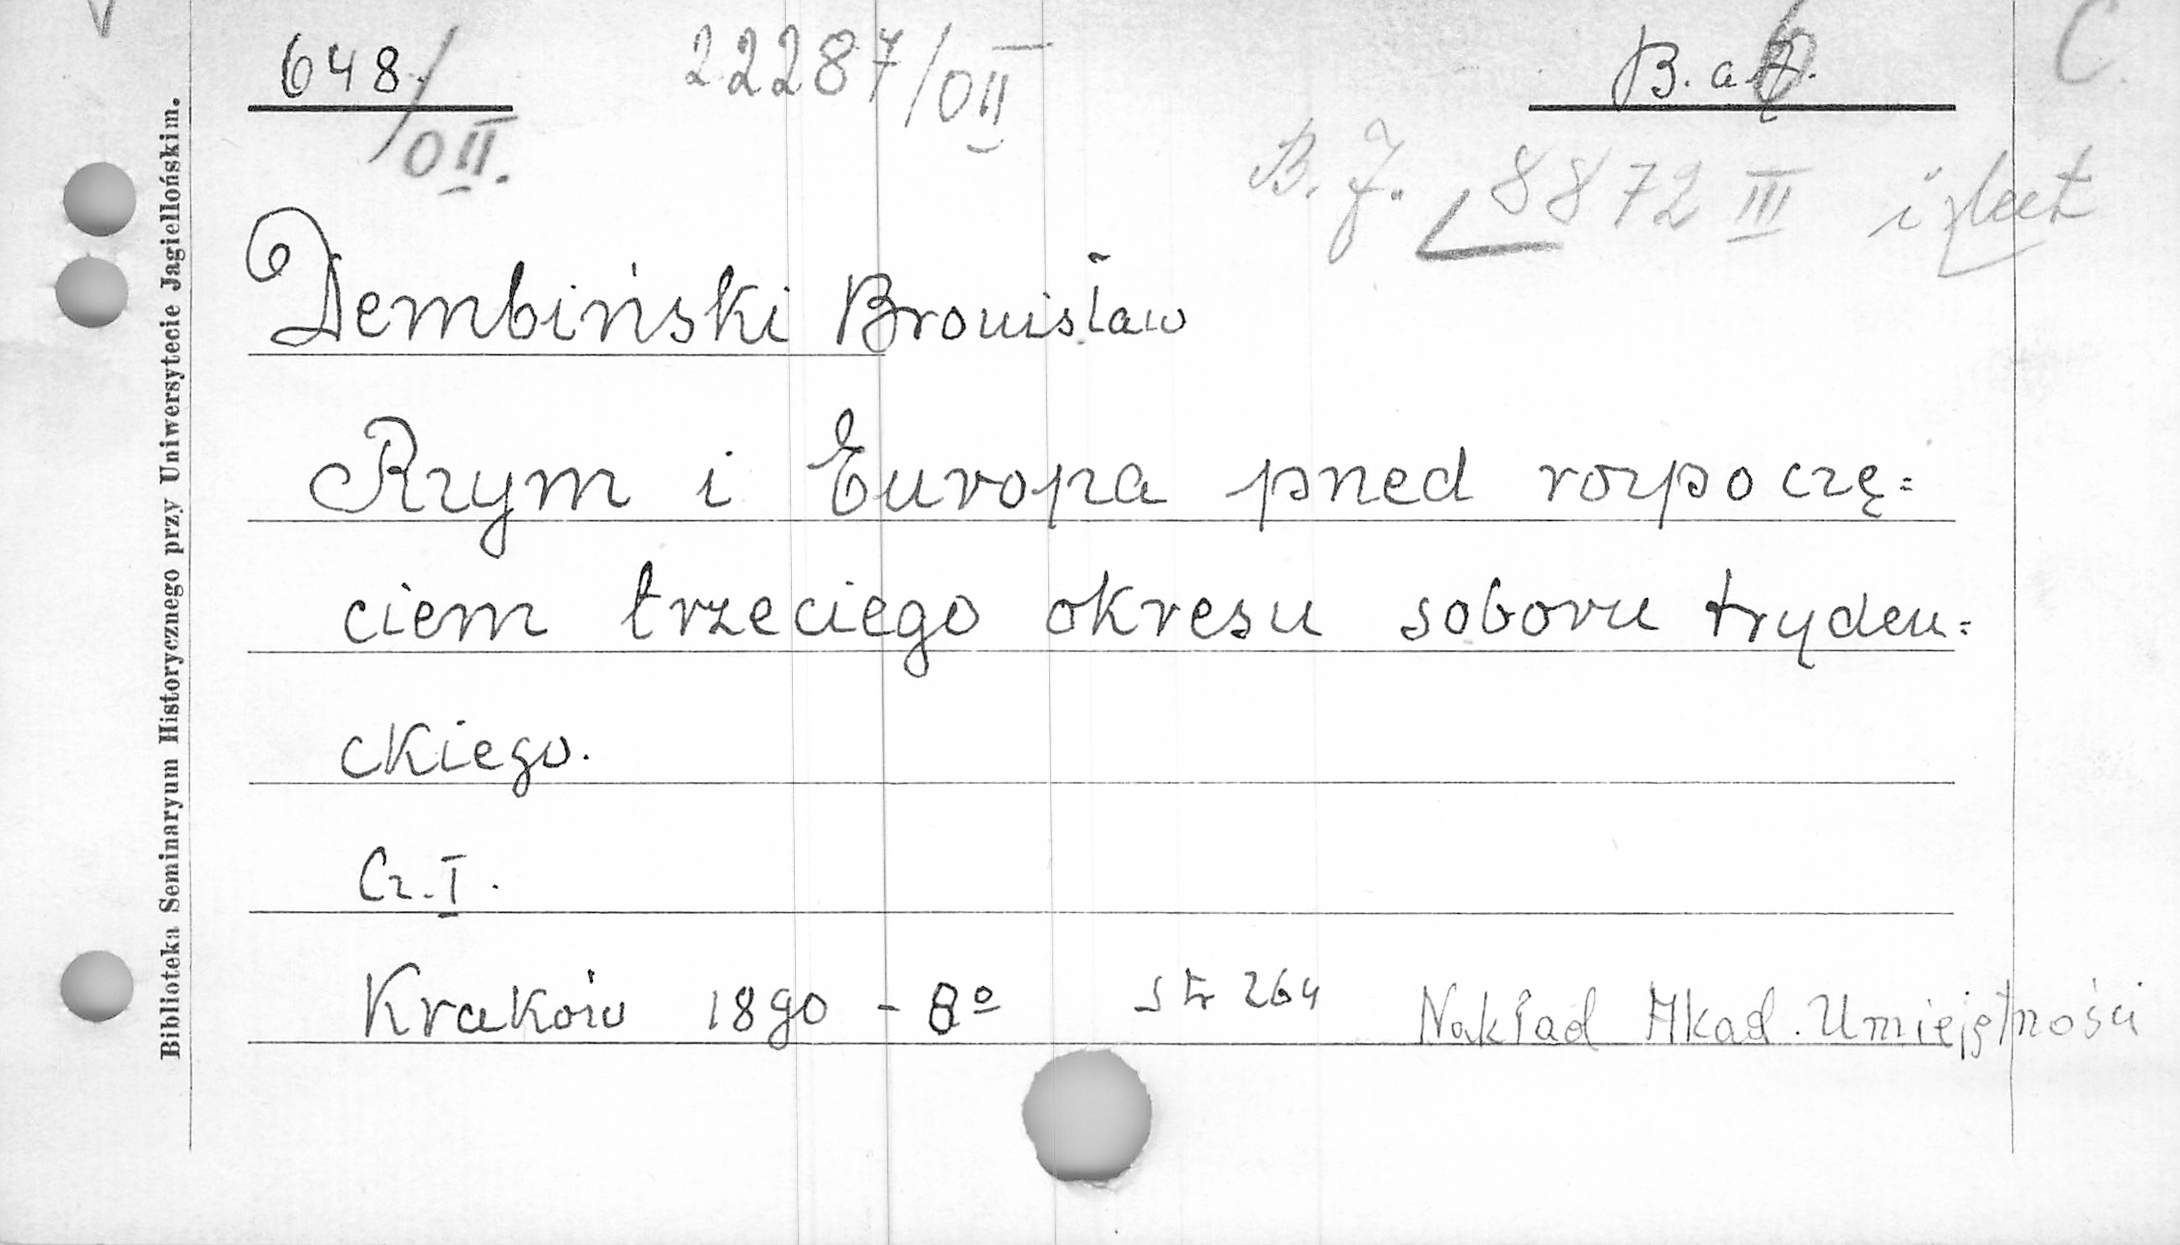 648/OII.
22287/OII
B. a
C.
B. J. 8872 III i
Dembiński Bronisław
Rzym i Europa przed rozpoczę=
ciem trzeciego okresu soboru tryden=
ckiego.
Cz. I.
Kraków 1890 - 8º str 264 Nakład Akad. Umiejętności
Biblioteka Seminaryum Historycznego przy Uniwersytecie Jagiellońskim.